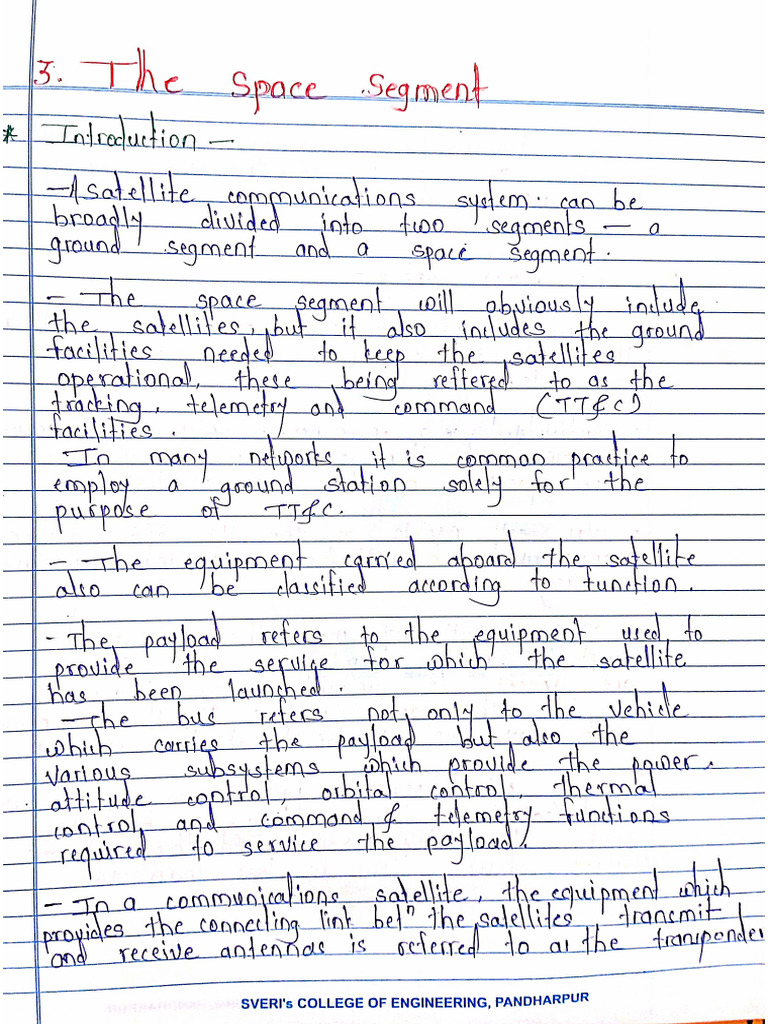 3. The Space Segment
* Introduction —
- A satellite communications system can be
broadly divided into two segments — a
ground segment and a space segment.
- The space segment will obviously include
the satellites, but it also includes the ground
facilities needed to keep the satellites
operational, these being reffered to as the
tracking, telemetry and command (TT&C)
facilities.
In many networks it is common practice to
employ a ground station solely for the
purpose of TT&C.
- The equipment carried aboard the satellite
also can be classified according to function.
- The payload refers to the equipment used to
provide the service for which the satellite
has been launched.
- The bus refers not only to the vehicle
which carries the payload but also the
various subsystems which provide the power,
attitude control, orbital control, thermal
control, and command & telemetry functions
required to service the payload.
- In a communications satellite, the equipment which
provides the connecting link betn the satellites, transmit
and receive antennas is referred to as the transponder
SVERI's COLLEGE OF ENGINEERING, PANDHARPUR